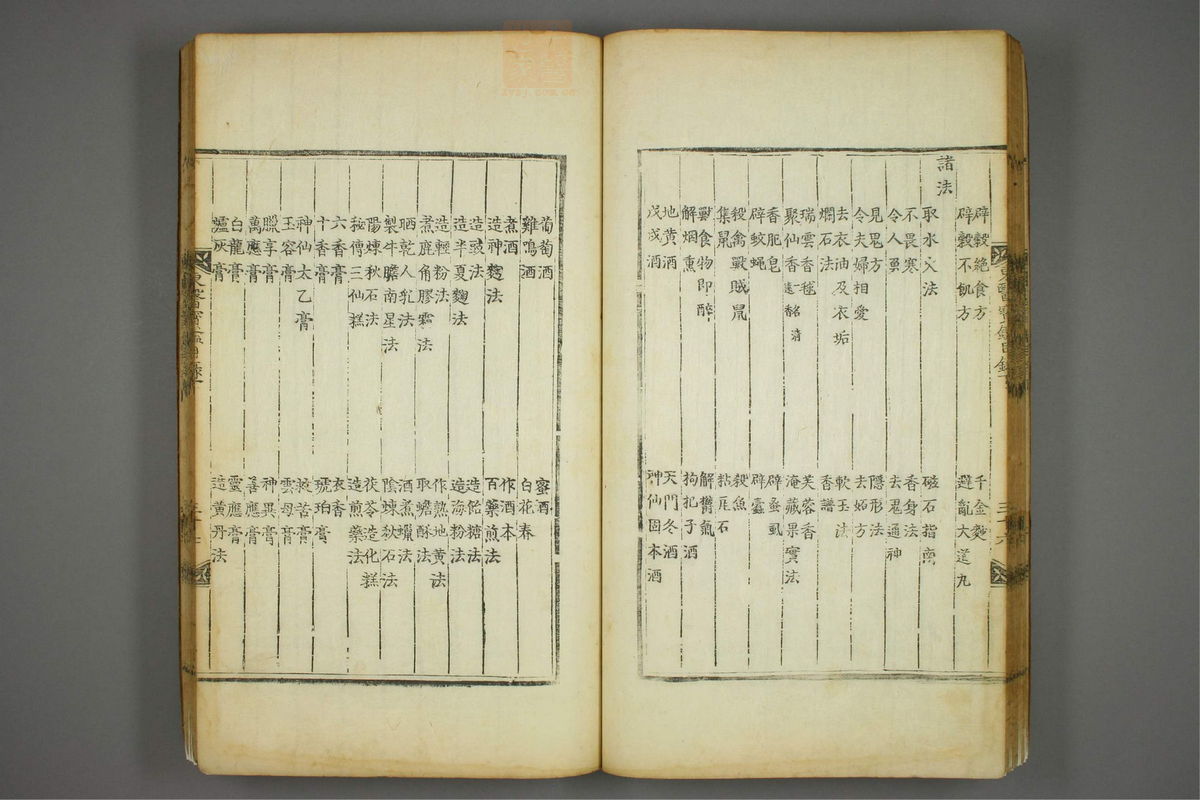 辟穀絶食方 千金麨
辟穀不飢方 避亂大道丸
諸法
取水火法 磁石指南
不畏寒 香身法
令人勇 去鬼通神
見鬼方 隱形法
令夫婦相愛 去妬方
去衣油及衣垢 軟玉法
爛石法 香譜
瑞雲香毬 芙蓉香
聚仙香 淹藏果實法
香肥皂 辟蚤虱
辟蚊蠅 辟蠹
殺禽獸賊鼠 殺魚
集鼠 粘瓦石
獸食物即醉 解鬱氣
解烟熏 拘杞子酒
地黃酒 天門冬酒
戊戌酒 神仙固本酒
葡萄酒 蜜酒
雞鳴酒 白花春
煮酒 作酒本
造神麴法 百藥煎法
造豉法 造飴糖法
造半夏麴法 造海粉法
造輕粉法 作熟地黃法
煮鹿角膠霜法 取蟾酥法
晒乾人乳法 酒煮蠟法
製牛膽南星法 陰煉秋石法
陽煉秋石法 茯苓造化糕
秘傳三仙糕 造煎藥法
六香膏 衣香
十香膏 琥珀膏
神仙太乙膏 救苦膏
玉容膏 雲母膏
臘享膏 神異膏
萬應膏 善應膏
白龍膏 靈應膏
爐灰膏 造黃丹法